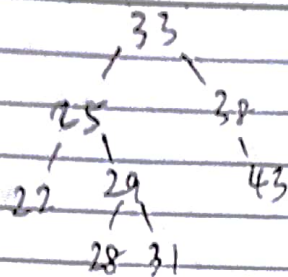 33
25 38
22 29 43
28 31